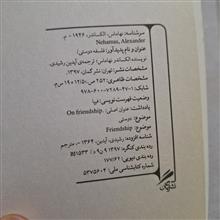 سرشناسه: نهاماس، الکساندر، ۱۹۴۶ - م.
Nehamas, Alexander
عنوان و نام پدیدآور: فلسفه دوستی/
نویسنده الکساندر نهاماس؛ ترجمه‌ی آیدین رشیدی.
مشخصات نشر: تهران: نشر گمان، ۱۳۹۷.
مشخصات ظاهری: ۲۵۲ ص.، ۱۲/۵×۱۹ س م.
شابک: ۱-۴۷-۷۲۸۹-۶۰۰-۹۷۸
وضعیت فهرست‌نویسی: فیپا
یادداشت: عنوان اصلی: On friendship.
موضوع: دوستی
موضوع: Friendship
شناسه افزوده: رشیدی، آیدین، ۱۳۶۴ -، مترجم
رده بندی کنگره: ۱۳۹۷ ۹ن۹د/ BJ۱۵۳۳
رده بندی دیویی: ۱۷۷/۶۲
شماره کتابشناسی ملی: ۵۳۷۵۶۰۲
نشر گمان